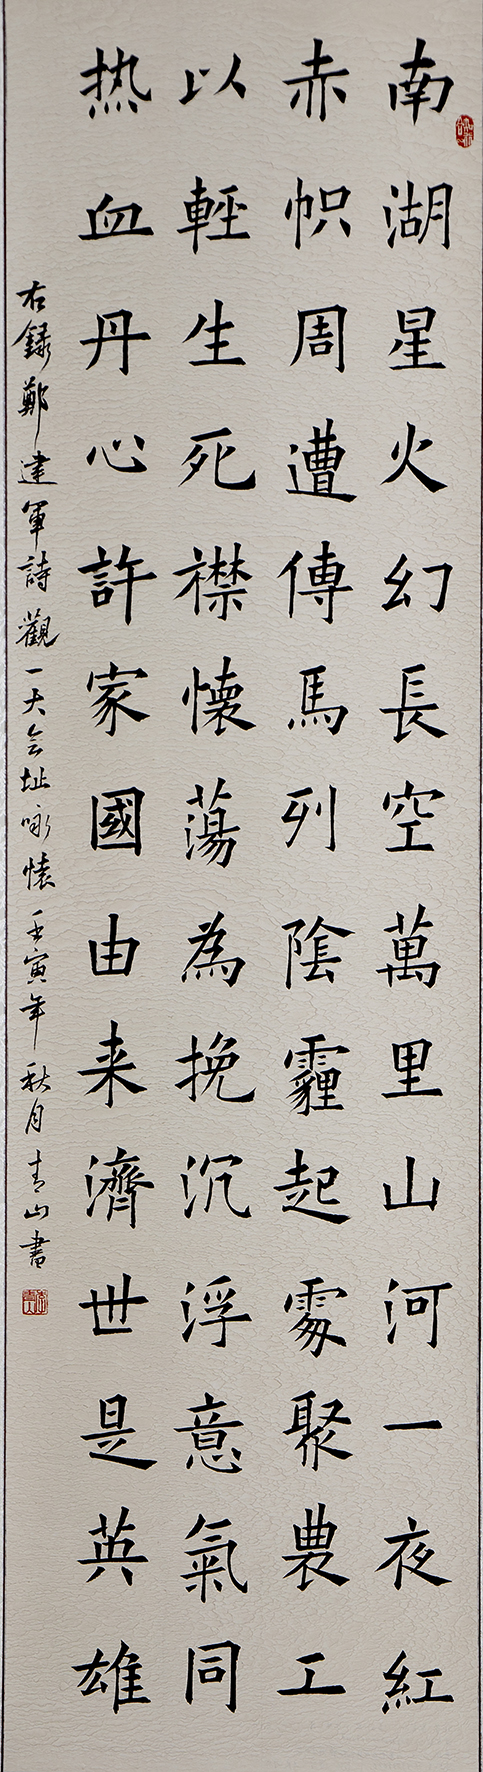 南湖星火幻長空萬里山河一夜紅
赤帜周遭傳馬列陰霾起處聚農工
以輕生死襟懷蕩為挽沉浮意氣同
热血丹心許家國由来濟世是英雄
右録鄭建軍詩觀一大会址咏懷壬寅年秋月青山書